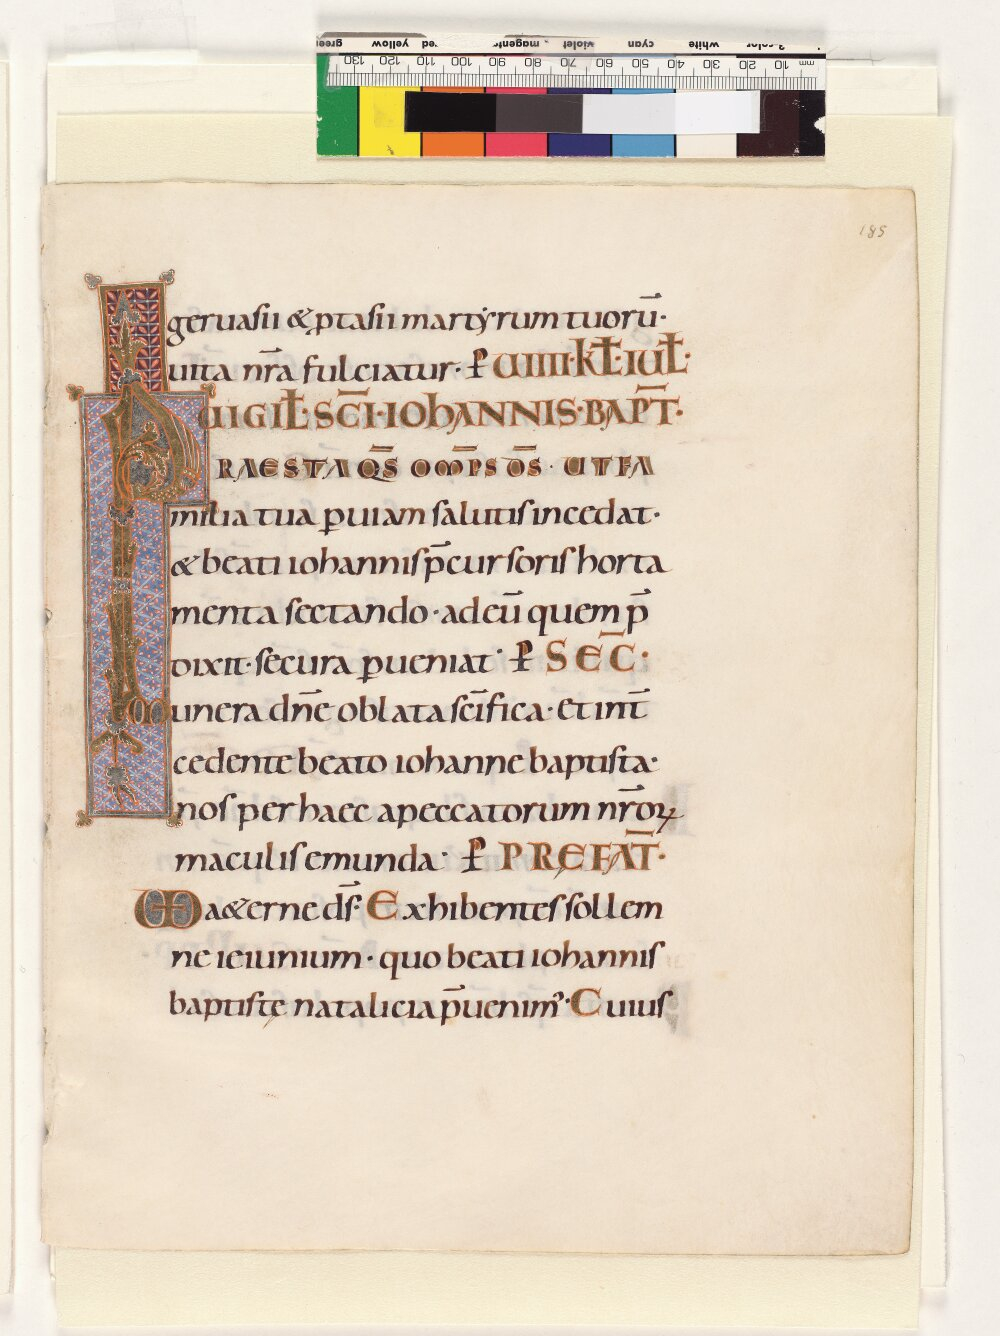 green yellow red magenta violet cyan white 3-color
130 120 110 100 90 80 70 60 50 40 30 20 10 mm
185
geruasii & ꝓtasii martyrum tuorū·
uita nr̄a fulciatur· P UIIII·Kł·IUł·
UIGIł·SC̄I·IOHANNIS·BAPT̄·
PRAESTA QS̄ OMPS D̄S· UT FA
milia tua ꝑ uiam salutis incedat·
& beati iohannis p̄cursoris horta
menta sectando· ad eū quem p̄
dixit· secura ꝑueniat· P SEC̄·
Munera dn̄e oblata sc̄ifica· et int̄
cedente beato iohanne baptista·
nos per haec a peccatorum nr̄oꝝ
maculis emunda· P PREFAT̄·
UD a&erne ds̄· Exhibentes sollem
ne ieiunium· quo beati iohannis
baptistę natalicia p̄uenim᾽· Cuius